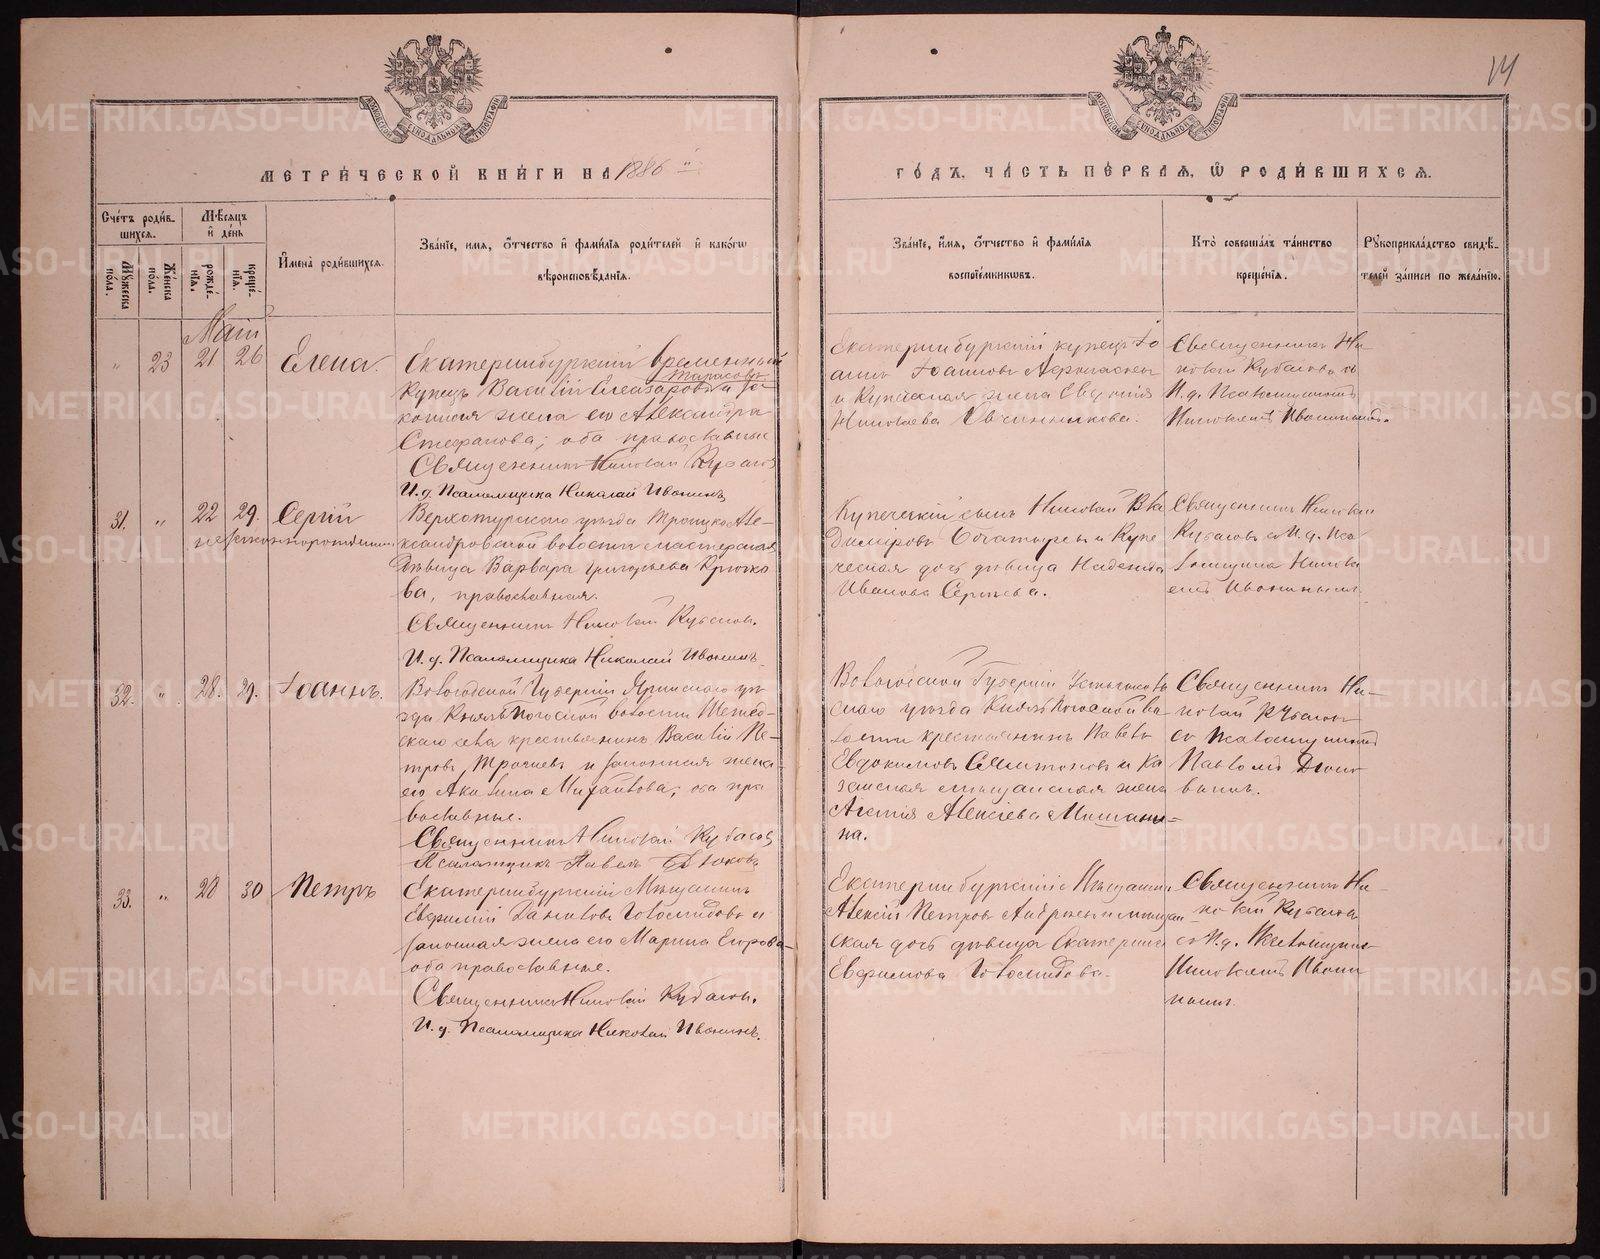 14
МЕТРИЧЕСКОЙ КНИГИ НА 1886 ГОДЪ, ЧАСТЬ ПЕРВАЯ, Ѡ РОДИВШИХСЯ.
Счетъ родив-
шихся.
Мужеска пола.
Женска пола.
Мѣсяцъ и день
рожденія.
крещенія.
Имена родившихся.
Званіе, имя, отчество и фамилія родителей и какого
вѣроисповѣданія.
Званіе, имя, отчество и фамилія
воспріемниковъ.
Кто совершалъ таинство
крещенія.
Рукоприкладство свидѣ-
телей записи по желанію.
Май
" 23 21 26 Елена.
Екатеринбургскій временный
Тарасовъ
Купецъ Василій Елеазаровъ и за-
конная жена его Александра
Стефанова; оба православные
Священникъ Николай Кубасов
И. д. Псаломщика Николай Ивонинъ
Екатеринбургскій купецъ Іо
аннъ Іоанновъ
и Купеческая жена Евдокія
Николаева Овчинникова.
Священникъ Ни-
колай Кубасовъ съ
И. д. Псаломщикомъ
Николаемъ Ивонинымъ.
31. " 22 29. Сергій
незаконнорожденный
Верхотурскаго уѣзда Троицко Але-
ксандровской волости мастерская
дѣвица Варвара Григорьева Крючко
ва, православная.
Священникъ Николай Кубасовъ.
И. д. Псаломщика Николай Ивонинъ.
Купеческій сынъ Николай Вла
димировъ Богатыревъ и Купе
ческая дочь дѣвица Надежда
Иванова Сергѣева.
Священникъ Николай
Кубасовъ съ И. д. Пса
ломщика Никола
емъ Ивонинымъ.
32. " 28. 29. Іоаннъ.
Вологодской Губерніи Яринскаго уѣ
зда Князь Погоской волости
скаго села крестьянинъ Василій Пе-
тровъ и законная жена
его Акилина Михайлова; оба пра
вославные.
Священникъ Николай Кубасов
Псаломщикъ Павелъ Дьюковъ
Вологодской Губерніи
скаго уѣзда Князь Погоской во
лости крестьянинъ Павелъ
Евдокимовъ и Ка
занская мѣщанская жена
Агнія Алексіева Мишани-
на.
Священникъ Ни-
колай Кубасовъ
съ Псаломщикомъ
Павломъ
33. " 28 30 Петръ
Екатеринбургскій Мѣщанинъ
Евфимій Даниловъ Голомидовъ и
законная жена его Марина Егорова
оба православные.
Священникъ Николай Кубасовъ.
И. д. Псаломщика Николай Ивонинъ.
Екатеринбургскій Мѣщанинъ
Алексій Петровъ и мѣщан
ская дочь дѣвица Екатерина
Евфимова Голомидова.
Священникъ Ни-
колай Кубасовъ
съ И. д. Псаломщика
Николаемъ Ивони
нымъ.